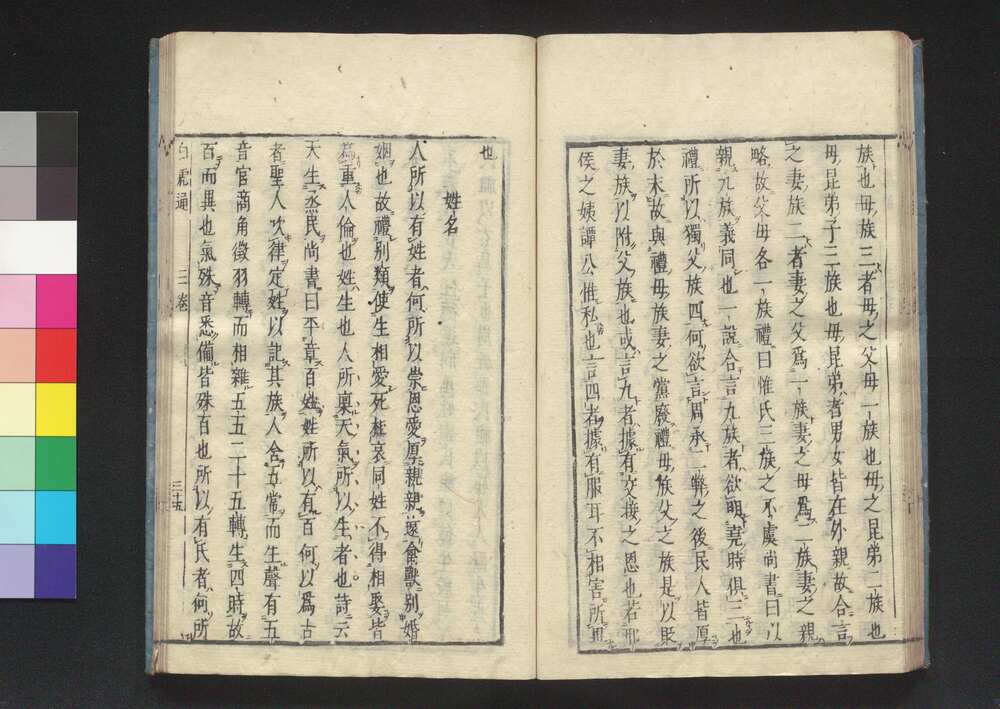 族也母族三者母之父母一族也母之昆弟二族也
母昆弟子三族也母昆弟者男女皆在外親故合言
之妻族二者妻之父爲一族妻之母爲一族妻之親
略故父母各一族禮曰惟氏三族之不虞尚書曰以
親九族義同也一說合言九族者欲明堯時俱三也
禮所以獨父族四何欲言周承二弊之後民人皆厚
於末故與禮母族妻之黨廢禮母族父之族是以貶
妻族以附父族也或言九者據有交接之恩也若邢
侯之姨譚公惟私也言四者據有服耳不相害所
也
姓名
人所以有姓者何所以崇恩愛厚親親遠禽獸別婚
姻也故禮別類使生相愛死相哀同姓不得相娶皆
爲重人倫也姓生也人所禀天氣所以生者也詩云
天生烝民尚書曰平章百姓姓所以有百何以爲古
者聖人吹律定姓以記其族人含五常而生聲有五
音宮商角徵羽轉而相雜五五二十五轉生四時故
百而異也氣殊音悉備皆殊百也所以有氏者何所
白虎通 三卷 三十五